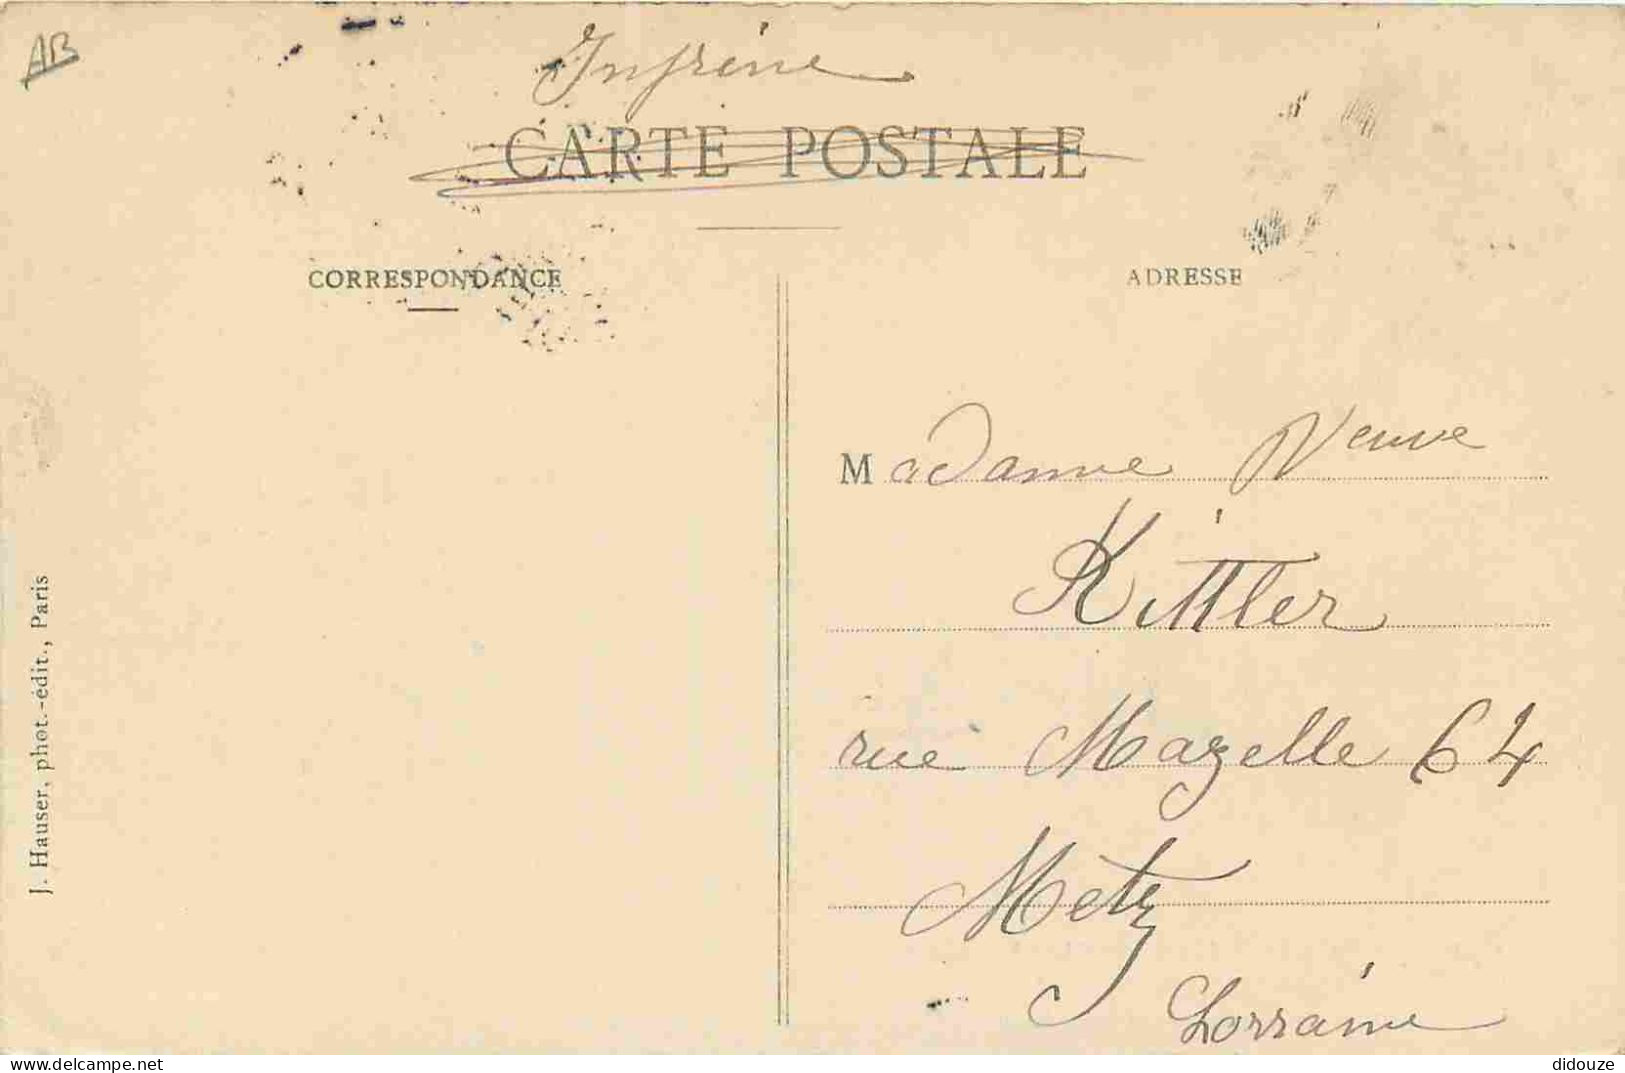 AB
CARTE POSTALE
CORRESPONDANCE
ADRESSE
Madame Veuve
Kittler
rue Mazelle 64
Metz
Lorraine
J. Hauser, phot.-édit., Paris
didouze